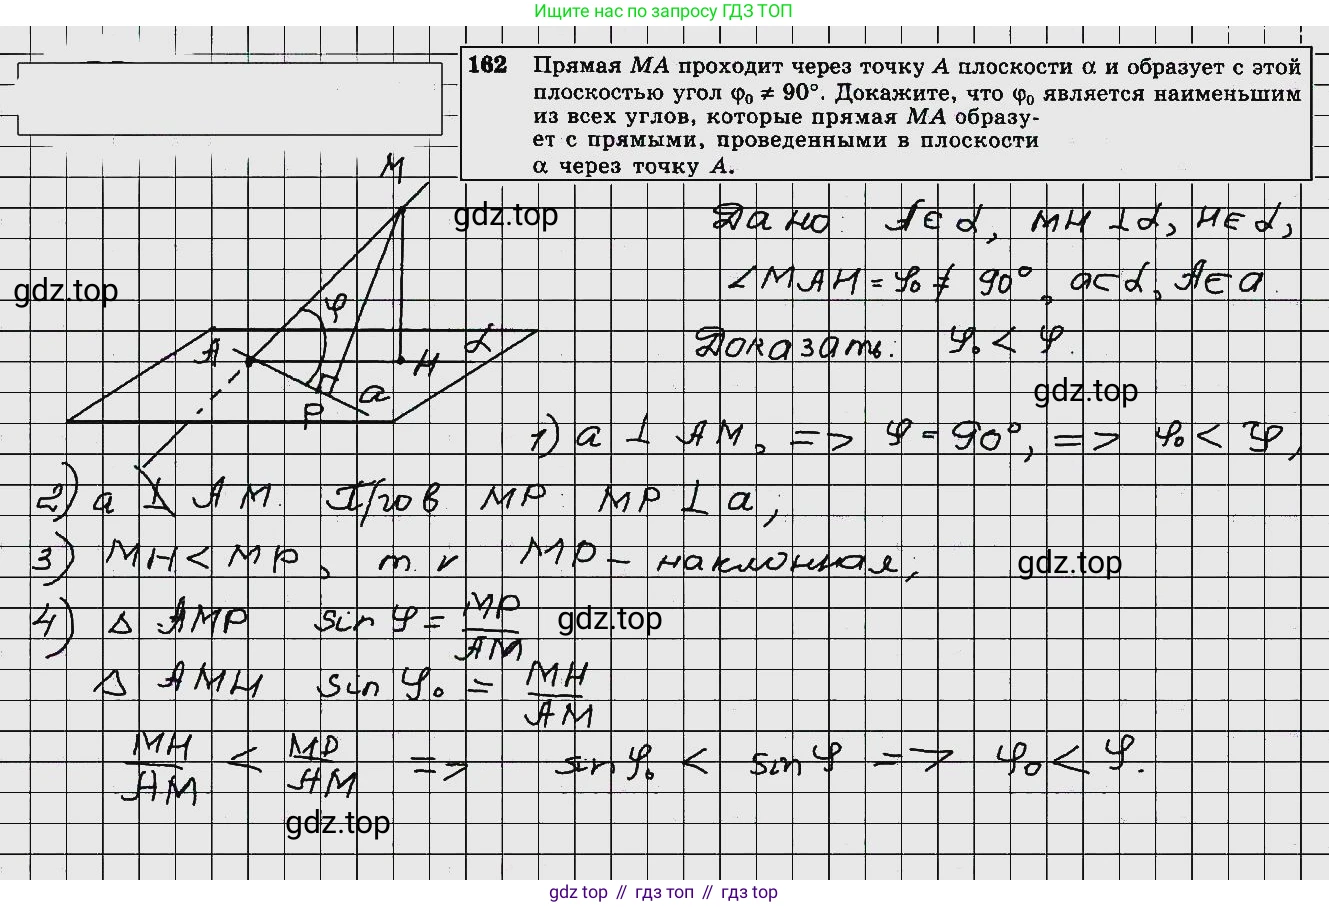 Ищите нас по запросу ГДЗ ТОП
162 Прямая MA проходит через точку A плоскости α и образует с этой
плоскостью угол φ₀ ≠ 90°. Докажите, что φ₀ является наименьшим
из всех углов, которые прямая MA образу-
ет с прямыми, проведенными в плоскости
α через точку A.
M
gdz.top
Дано: A ∈ α, MH ⊥ α, H ∈ α,
gdz.top
∠MAH = φ₀ ≠ 90°, a ⊂ α, A ∈ a.
φ
A
H
α
Доказать: φ₀ < φ.
gdz.top
P
a
1) a ⊥ AM, => φ = 90°, => φ₀ < φ,
2) a ⊥̸ AM. П/гов MP: MP ⊥ a;
3) MH < MP, т.к MP – наклонная;
gdz.top
4) Δ AMP sin φ = MP/AM
gdz.top
Δ AMH sin φ₀ = MH/AM
MH/AM < MP/AM => sin φ₀ < sin φ => φ₀ < φ.
gdz.top
gdz top // гдз топ // gdz top